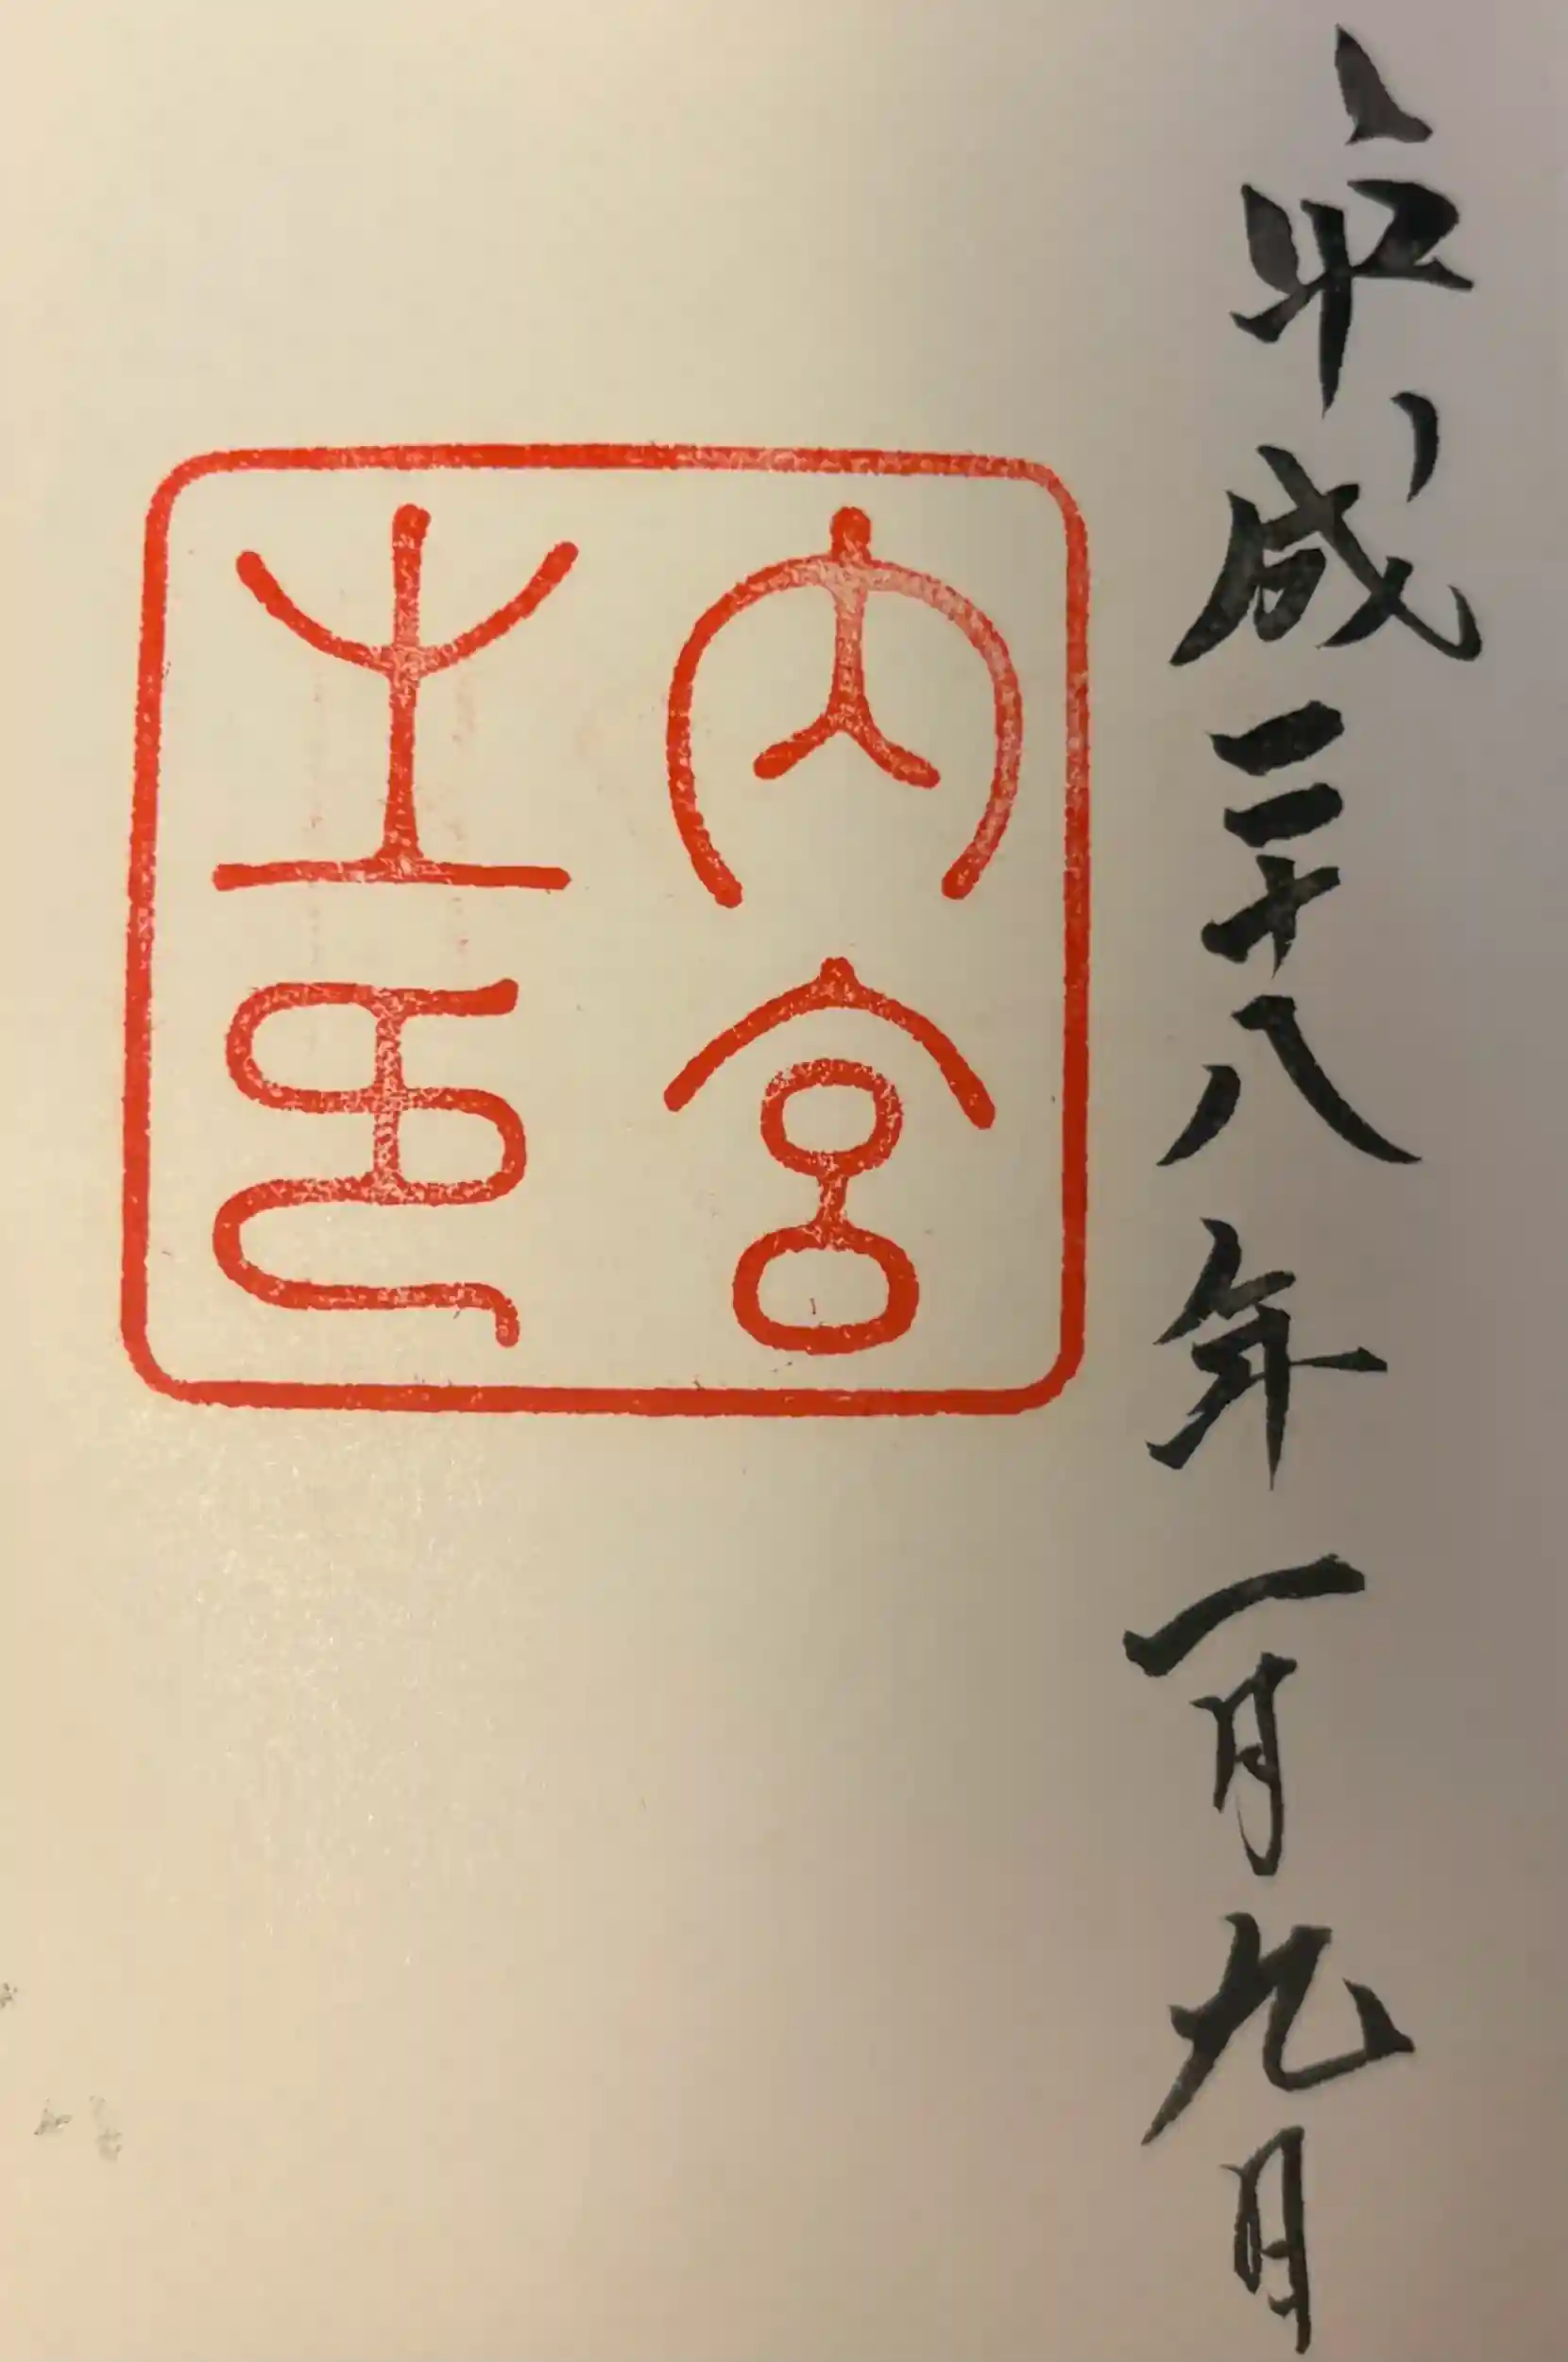 平成二十八年一月九日
内宮
之印